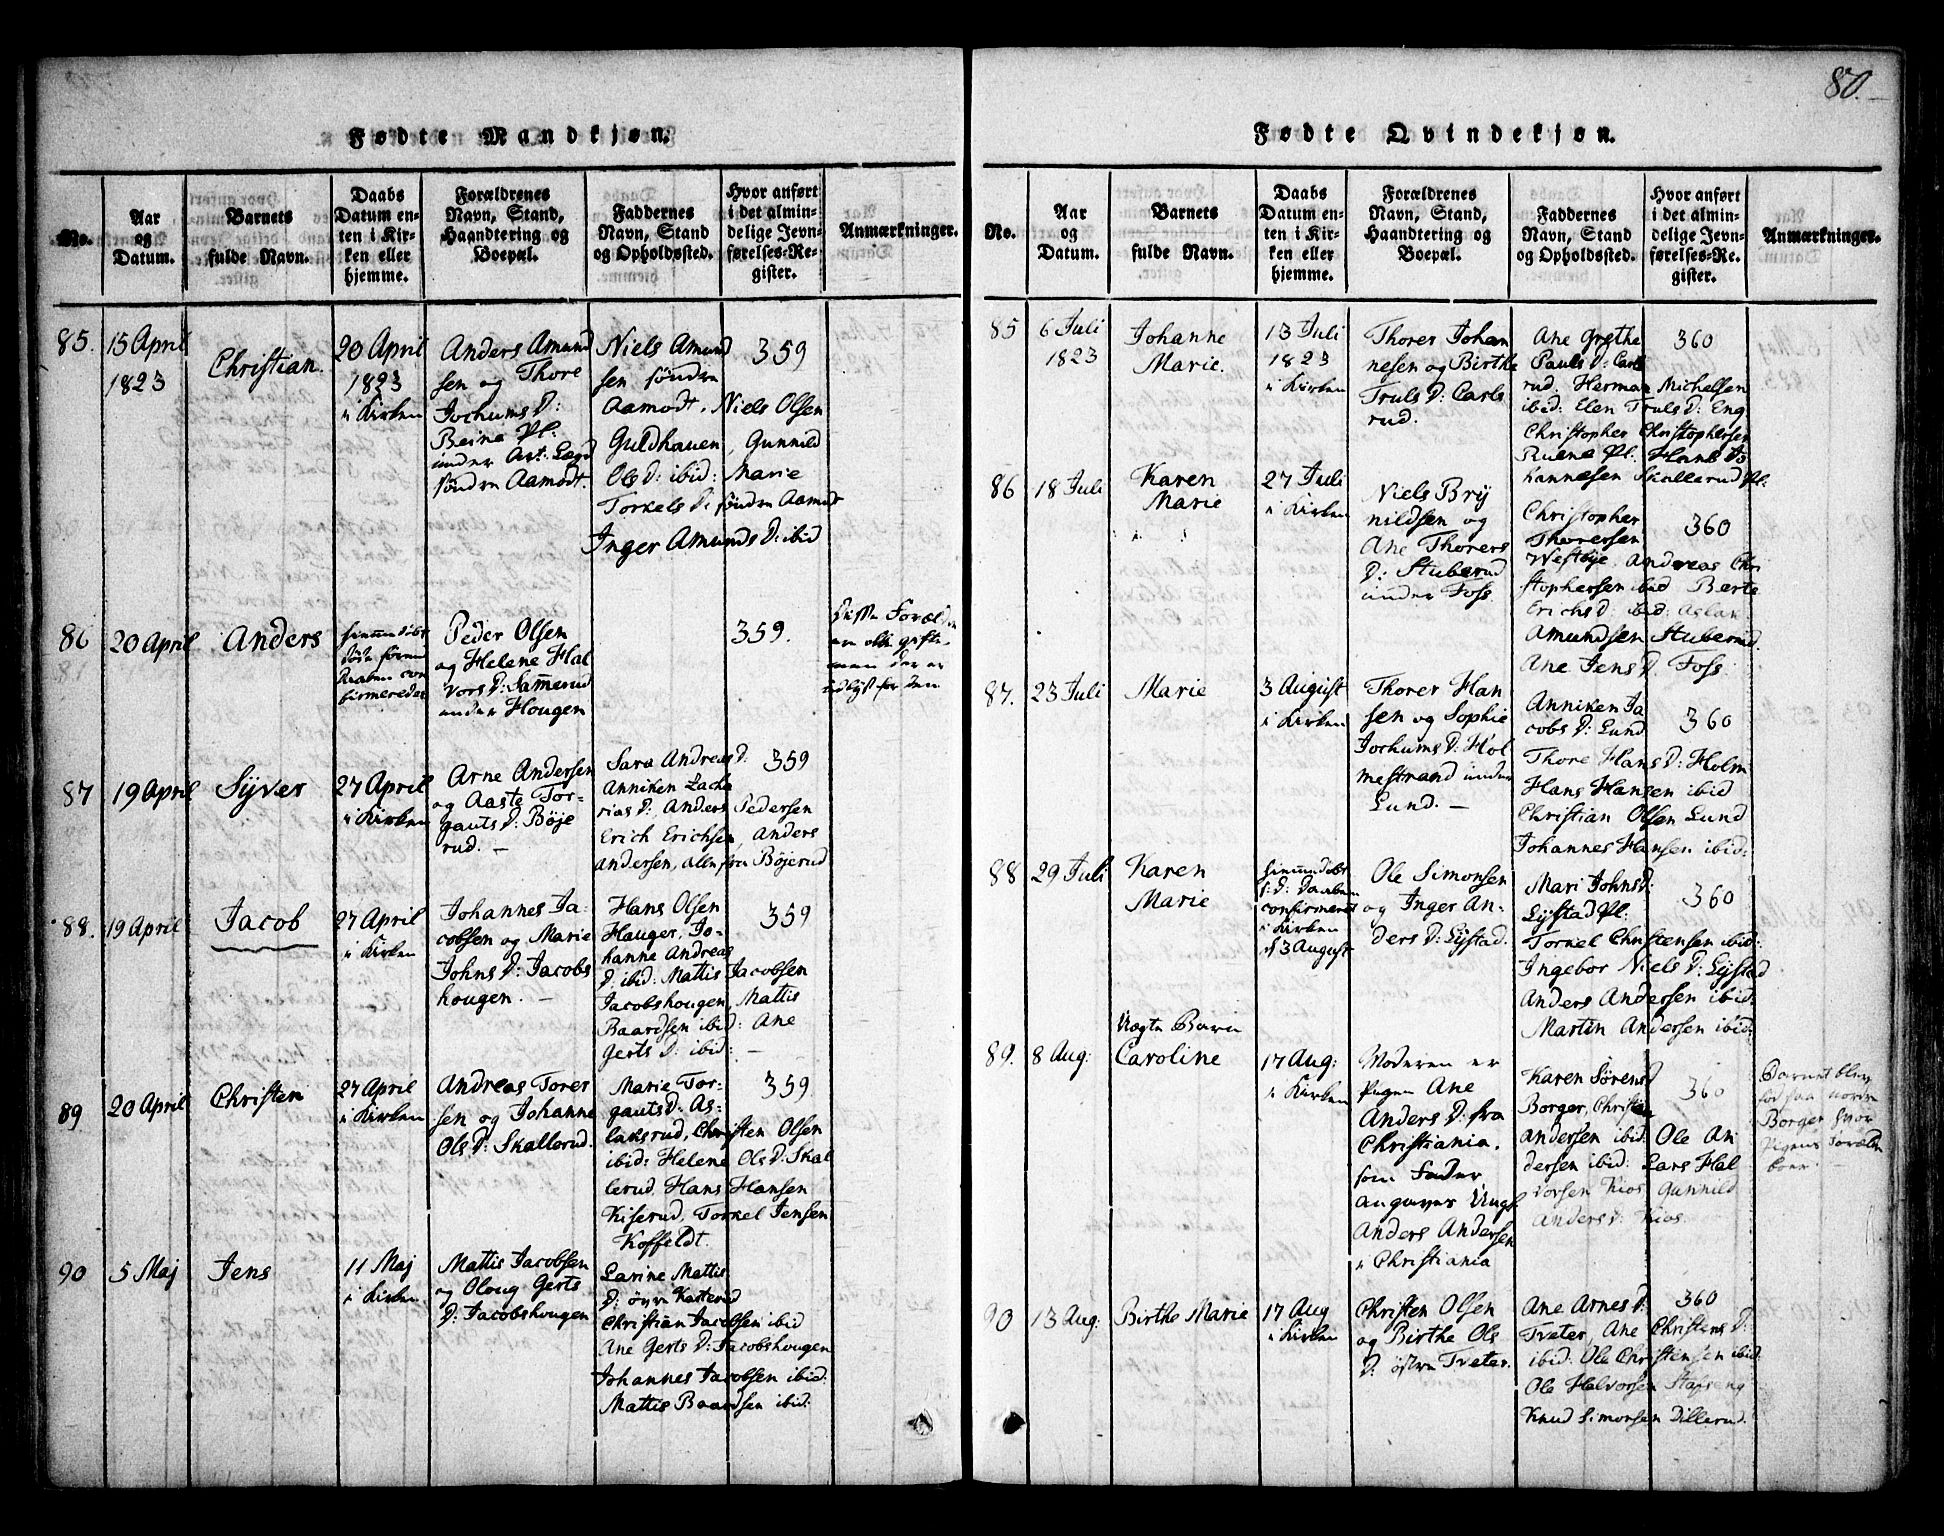 80.
Fødte Mandkjøn.
No.
Aar
og
Datum.
Barnets
fulde Navn.
Daabs
Datum en-
ten i Kir-
ken eller
hjemme.
Forældrenes
Navn, Stand,
Haandtering og
Boepæl.
Faddernes
Navn, Stand
og Opholdssted.
Hvor anført
i det almin-
delige Jevn-
førelses-Re-
gister.
Anmærkninger.
85.
15 April
1823
Christian.
20 April
1823
i Kirken
Anders Amund
sen og Thore
Jochums D:
Beina Pl:
under
søndre Aamodt.
Niels Amund
sen søndre
Aamodt, Niels Olsen
Guldhauen, Gunnild
Ols D: ibid: Marie
Torkels D: søndre Aamodt
Inger Amunds D: ibid
359
86
20 April
Anders
Peder Olsen
og Helene Hal
vors D: Sam̄erud
under Hougen
359.
87
19 April
Syver
27 April
i Kirken
Arne Andersen
og Aaste Tor-
gauts D: Böje
rud. –
Sara Andreas D:
Anniken Zacha
rias D: Anders Pedersen
Erich Erichsen, Anders
Andersen, alle fra Böjerud
359
88.
19 April
Jacob
27 April
i Kirken
Johannes Ja-
cobsen og Marie
Johns D: Jacobs
hougen. –
Hans Olsen
Hauger, Jo-
hanne Andreas
D: ibid: Mattis Jacobsen
Jacobshougen, Mattis
Baardsen ibid: Ane
Gerts D: ibid: –
359
89
20 April
Christen
27 April
i Kirken
Andreas Torer
sen og Johanne
Ols D: Skallerud.
Marie Tor-
gauts D: As-
laksrud, Christen Olsen
ibid: Helene Ols D: Skal
lerud, Hans Hansen
Kiserud, Torkel Jensen
Koffeldt.
359
90
5 Maj
Jens
11 Maj
i Kirken
Mattis Jacobsen
og Oloug Gerts
D: Jacobshougen
Larine Mattis
D: øvre Kasterud
Christian Jacobsen ibid
Ane Gerts D: Jacobshougen
Johannes Jacobsen ibid:
Mattis Baardsen ibid:
Fødte Qvindekjøn.
No.
Aar
og
Datum.
Barnets
fulde Navn.
Daabs
Datum en-
ten i Kir-
ken eller
hjemme.
Forældrenes
Navn, Stand,
Haandtering og
Boepæl.
Faddernes
Navn, Stand
og Opholdssted.
Hvor anført
i det almin-
delige Jevn-
førelses-Re-
gister.
Anmærkninger.
85
6 Juli
1823
Johanne
Marie.
13 Juli
1823
i Kirken
Thorer Johan
nesen og Birthe
Truls D: Carls
rud.
Ane Grethe
Pauls D: Carls
rud. Herman Michelsen
ibid: Elen Truls D: Eng
Christopher Christophersen
Ruene Pl: Hans Jo
hannesen Skallerud Pl:
360
86
18 Juli
Karen
Marie
27 Juli
i Kirken
Niels Bry
nildsen og
Ane Thorers
D: Stuberud
under Foss.
Christopher
Thorersen
Westbye, Andreas Chri
stophersen ibid Berte
Erichs D: ibid: Aslak
Amundsen Stuberud.
Ane Jens D. Foss:
360
87.
23 Juli
Marie
3 August
i Kirken
Thorer Han
sen og Sophie
Jochums D: Hol
mestrand under
Lund. –
Anniken Ja
cobs D: Lund
Thore Hans D: Holm
Hans Hansen ibid
Christian Olsen Lund
Johannes Hansen ibid:
360
88
29 Juli
Karen
Marie
confirmeret
i Kirken
d 3 August
Ole Simonsen
og Inger An-
ders D: Lystad.
Mari Johns D:
Lystad Pl:
Torkel Christensen ibid:
Ingebor Niels D: Lystad
Anders Andersen ibid:
Martin Andersen ibid:
360
89.
8 Aug:
Uægte Barn
Caroline
17 Aug:
i Kirken
Moderen er
Pigen Ane
Anders D: fra
Christiania.
som Fader
angaves Ungk.
Anders Andersen
i Christiania
Karen Sørens D
Borger, Christian
Andersen ibid. Ole An
dersen ibid: Lars Hal
vorsen Kios Gunnild
Anders D: Kios.
360
Barnet blev
fød paa nordre
Borger hvor
Pigens Forældre
boer. –
90
13 Aug:
Birthe Marie
17 Aug
i Kirken
Christen Olsen
og Birthe Ols
D: østre Tveter.
Ane Arnes D:
Tveter, Ane Christens D:
ibid: Ole Christensen ibid:
Ole Halvorsen Stafseng
Knud Simonsen Dillerud.
360